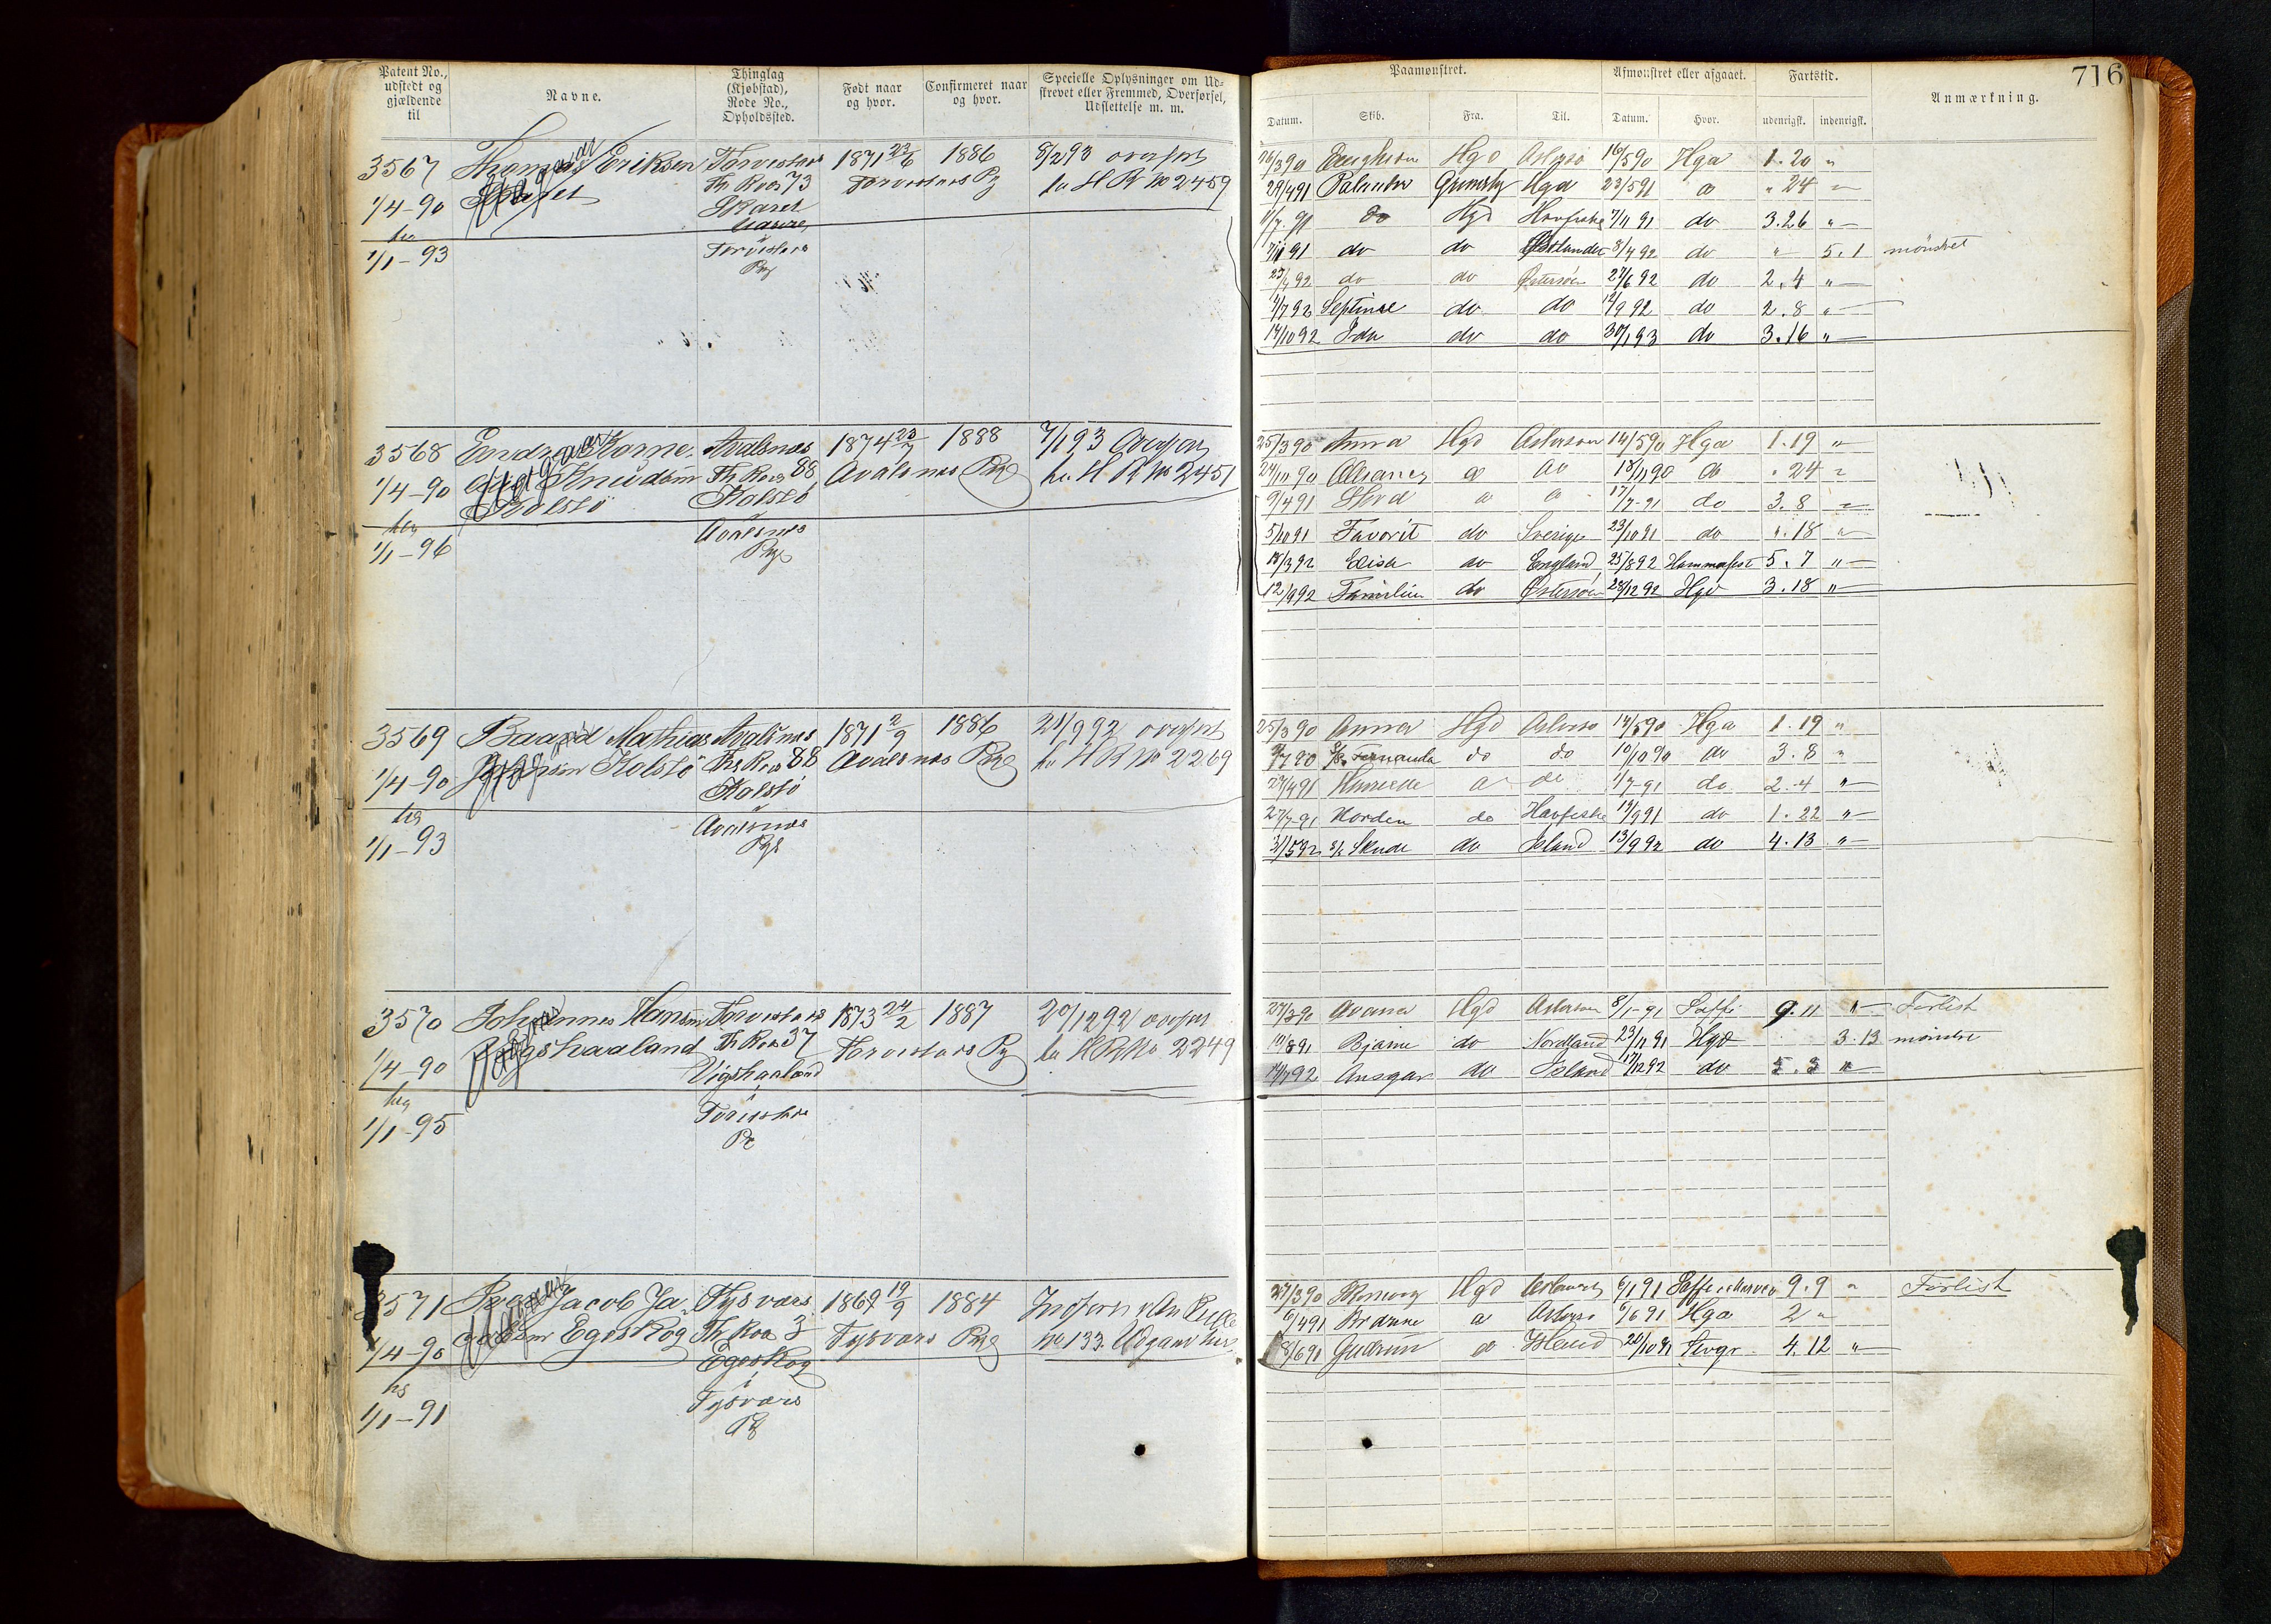 Patent No.,
udstedt og
gjældende
til
Navne.
Thinglag
(Kjøbstad),
Rode No.,
Opholdssted.
Født naar
og hvor.
Confirmeret naar
og hvor.
Specielle Oplysninger om Ud-
skrevet eller Fremmed, Overførsel,
Udslettelse m. m.
3567 Thomas Eriksen Torvestads 1871 23/6 1886 8/2 93 overført
1/4-90 Skaret Th Rode 73 Torvestads Pg til H R No 2459
til Skaret
1/1-93 Torvestads
Pg
3568 Endre Korne- Avalsnes 1874 23/7 1888 7/1 93 Overført
1/4-90 Knudsen Th Rode 88 Avalsnes Pg til H R No 2451
Kolstö Kolstö
til i
1/1-96 Avalsnes
Pg
3569 Baard Mathias Avalsnes 1871 2/9 1886 21/9 92 overført
1/4-90 Kolstö Th Rode 88 Avalsnes Pg til H R No 2269
Kolstö
til i
1/1-93 Avalsnes
Pg
3570 Johannes Hansen Torvestads 1873 24/2 1887 20/12 92 overført
1/4-90 Vigshaaland Th Rode 37 Torvestads Pg til H R No 2249
Vigshaaland
til i
1/1-95 Torvestads
Pg
3571 Jacob Ja- Tysværs 1869 19/9 1884
1/4-90 cobsen Egeskog Th Rode 3 Tysværs Pg No 133. Udgaar her
Egeskog
til i
1/1-91 Tysværs
Pg
716
Paamønstret.
Afmønstret eller afgaaet.
Fartstid.
Anmærkning.
Datum.
Skib.
Fra.
Til.
Datum.
Hvor.
udenrigsk.
indenrigsk.
16/3 90 Hgd Østersö 16/5 90 Hgd 1.20 "
29/4 91 Palander Grimsby Hgd 23/5 91 do " 24 "
1/7 91 do Hgd Havfiske 7/11 91 do 3.26 "
7/11 91 do do Østlandet 8/4 92 do " 5.1 mönstret
23/4 92 do do Østersöen 27/6 92 do 2.4 "
4/7 92 Septima do do 12/9 92 do 2.8 "
14/10 92 Ida do do 30/1 93 do 3.16 "
25/3 90 Anna Hgd Østersöen 14/5 90 Hgd 1.19 "
24/10 90 do do 18/11 90 do " 24 "
9/4 91 do do 17/7-91 do 3.8 "
5/10 91 Favorit do Sverige 23/10 91 do ". 18 "
18/3 92 Elisa do England 25/8 92 Hammerfest 5.7 "
12/9 92 Familien do Østersöen 28/12 92 Hgd 3.18 "
25/3 90 Anna Hgd Østersö 14/5 90 Hgd 1.19 "
2/7 90 S/s. Fernanda do do 10/10 90 do 3.8 "
27/4 91 do do 1/7-91 do 2.4 "
27/7-91 Norden do Havfiske 19/9 91 do 1.22 "
31/5 92 S/s Skude do Island 13/9 92 do 4.13 "
27/3 90 Avance Hgd Østersöen 8/1-91 Saffi 9.11 " Forlist
10/8 91 Bjarne do Nordland 23/11 91 Hgd 3.13 mönstre
14/7 92 Ansgar do Island 17/12 92 do 5.3 "
27/3 90 Hgd 6/1 91 9.9 " Forlist
6/4 91 Brödrene do Østersö 6/6 91 Hgd 2 "
8/6 91 Gudrun do Island 20/10 91 Stvgr 4.12 "